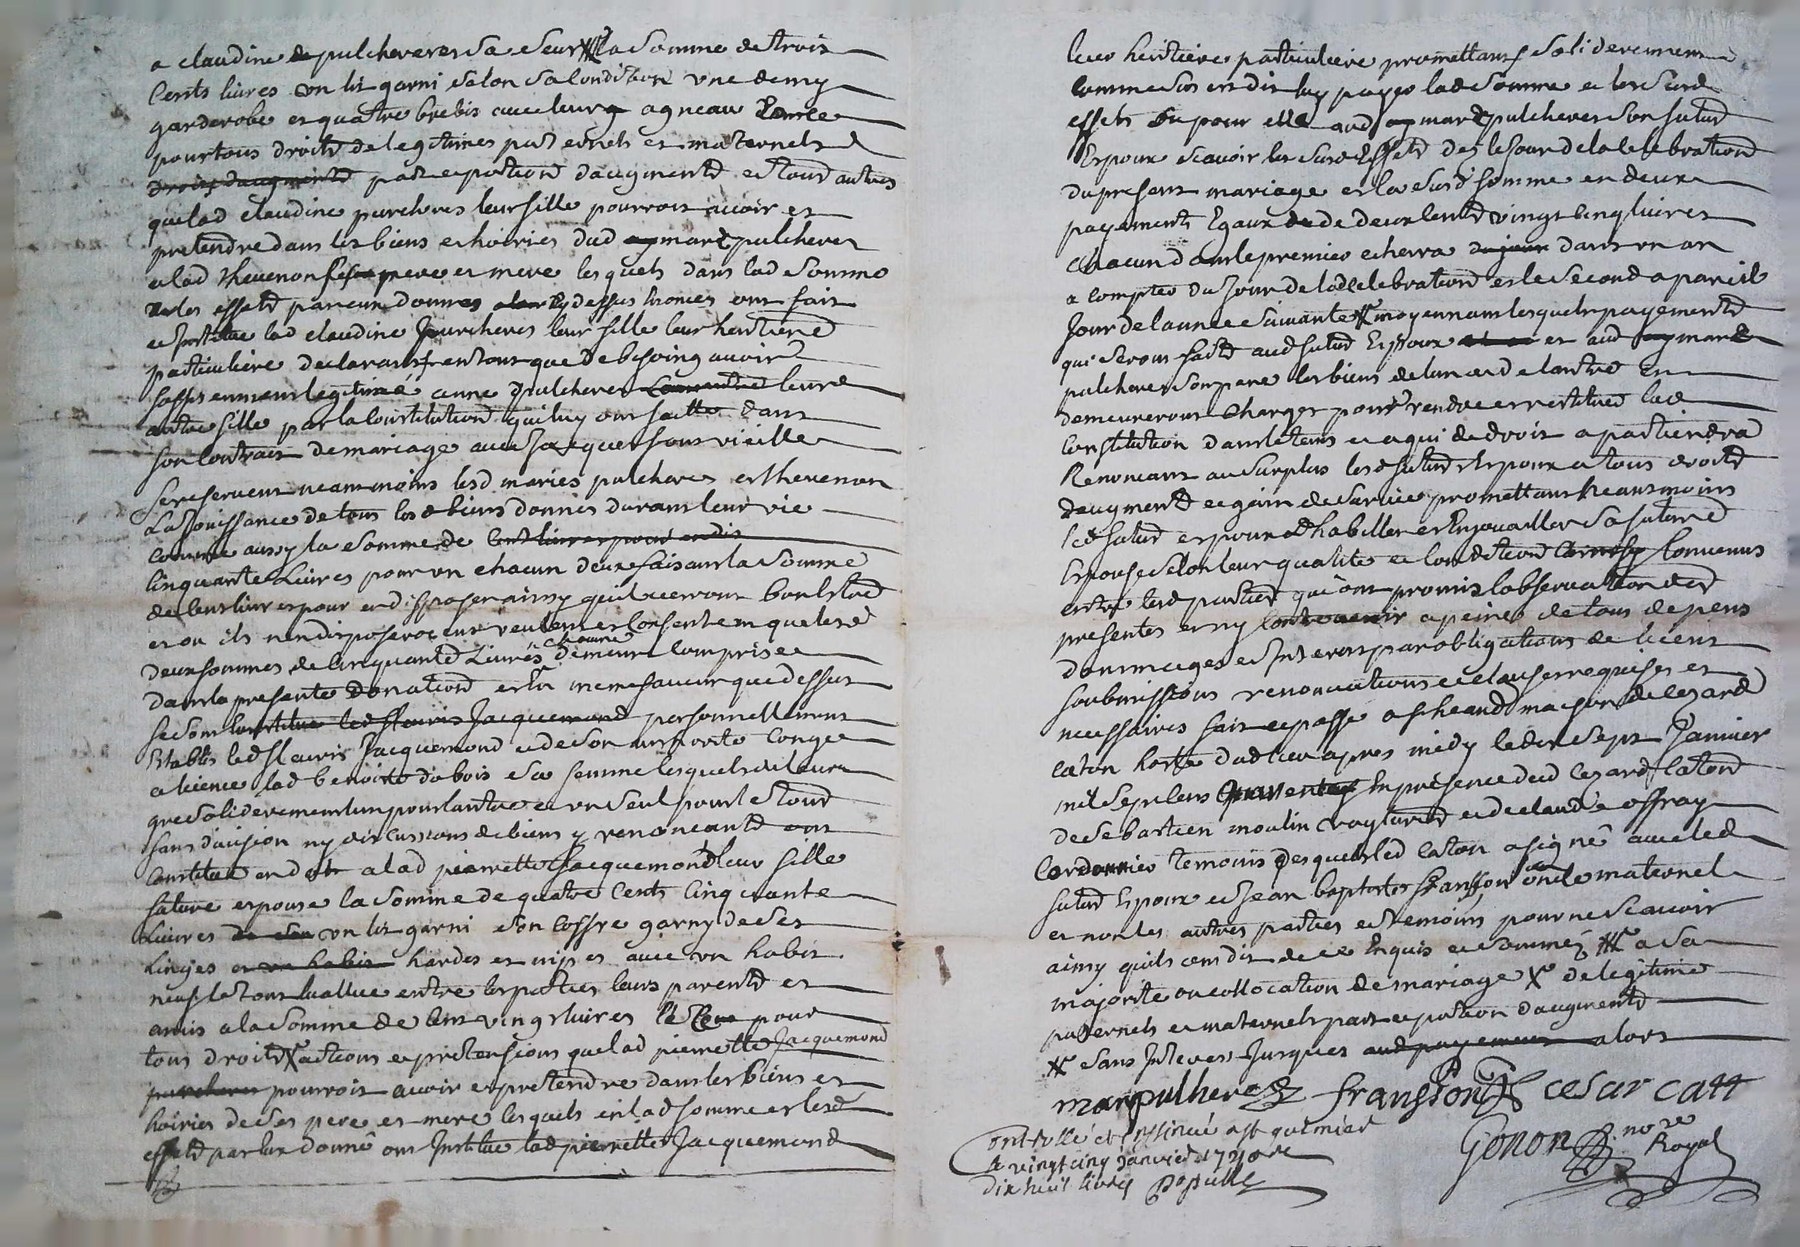 a claudine de pulcheveres sa seur la somme de trois
Cents livres un lit garni selon sa condition une demy
garderobe et quatre brebis avec leurs agneau
pour tous droits de legitimes paternels et maternels
droits daugmentd part et portion daugmentd et tous autres
que lad claudine purcheres leur fille pourroit avoir et
pretendre dans les biens et hoiries dud marc pulcheres
et lad thevenon ses pere et mere lesquels dans lad somme
et les effetd par eux donnes cy dessus enonces ont fait
et institue lad claudine purcheres leur fille leur heritiere
particuliere declarans en tant que de besoing avoir
fasses en meme legitime anne pulcheres leurs
autre fille par la constitution quil luy ont faitte dans
son contrait de mariage avec jacques fontvieille
se reservent neammoins lesd maries pulcheres et thevenon
La jouissance de tous lesd biens donnés durant leur vie
comme aussy la somme de cent livres pour en dis
Cinquante Livres pour un chacun deux faisant la somme
de cent livres pour en disposer ainsy quil verront bon lestre
et ou ils nen disposeroient veulent et consentem que lesd
deux sommes de cinquante Livres chacune demeure comprise
dans la presente donation et en meme faveur que dessus
se sont constitue led flouris Jacquemond personnellement
Etablis led flouris Jacquemond et de son authorite conge
et licence lad benoite dubois sa femme lesquels de leur
gre solidairement lun pour lautre et un seul pour le tout
sans division ny discussions de biens y renoncantd ont
constitue en dot a lad pierrette Jacquemond leur fille
future epouse la somme de quatre Cents Cinquante
Livres un lit garni son coffre garny de ses
Linges et un habit hardes et nipes avec un habit
neuf le tout evallue entre les parties leurs parentd et
amis a la somme de cent vingt livres le tout pour
tous droitd actions et pretensions que lad pierrette Jacquemond
purcheres pourroit avoir et pretendre dans les biens et
hoiries de ses pere et mere lesquels en lad somme et lesd
effetd par eux donné ont Institue lad pierrette Jacquemond
leur heritiere particuliere promettans solidairement
comme sus est dit luy payer lad somme et les susd
effets ou pour elle aud marc pulcheres son futur
Epoux scavoir les susd effetd des le jour de la celebration
du present mariage et la susd somme en deux
payements Egaux de deux cents vingt cinq livres
chacun dont le premier echerra dans un an
a compter du jour de lad celebration et le second a pareil
jour de lannee suivante moyennant lesquels payementd
qui seront faitd aud futur Epoux et aud marc
pulcheres son pere les biens de lun et de lautre en
demeureront charges pour rendre et restitues lad
constitution dans le tems et a qui de droit apartiendra
Renoncant au surplus lesd futurs Epoux a tous droitd
daugment et gain de survie promettant neantmoins
led futur epoux dhabiller et Enjouailler sa future
Epouse selon leur qualite et condition convenus
entre lesd parties qui ont promis lobservation desd
presentes et ny contrevenir a peine de tous depens
dommages et Interest par obligations de biens
soubmissions renonciations et clauses requises et
necessaires fait et passe a st heand maison de cezard
caton hoste dud lieu apres midy le dix sept Janvier
mil sept cens quarente En presence dud cezard caton
de sebastien moulin voytured et de claude offray
Cordonnier temoins desquels led caton a signé avec led
futur Epoux et jean baptiste franson oncle maternel
et non les autres parties et temoins pour ne scavoir
ainsy quils ont dit de ce Enquis et sommés a sa
majorite ou collocation de mariage de legitime
paternels et maternels part et portion daugmentd
sans Interest Jusques aud payement alors
marpulhere franson cesar catt
Gonon nore Royal
Controllé et insinué a st galmier
le vingt cinq janvier 1740 Re
dix huit livres